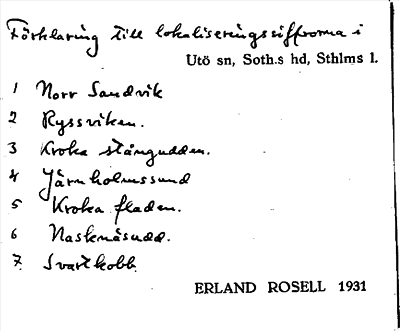 Förklaring till lokaliseringssiffrorna i
Utö sn, Soth.s hd, Sthlms l.
1 Norr Sandvik
2 Ryssviken.
3 Kroka stångudden.
4 Järnholmssund
5 Kroka fladen.
6 Masknäsudd.
7. Svartkobb
ERLAND ROSELL 1931